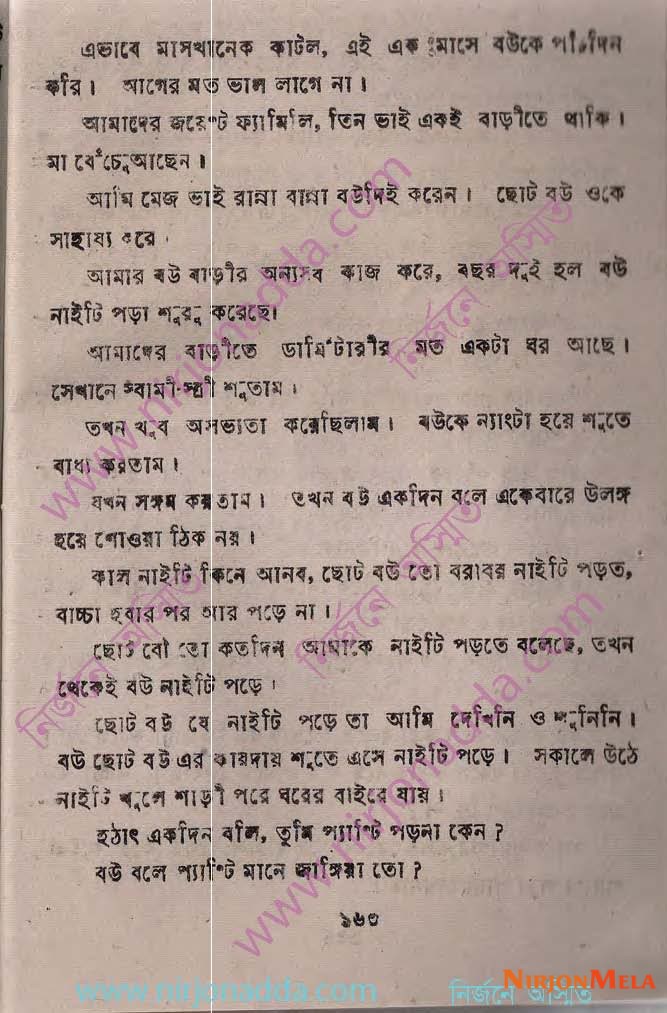 এভাবে মাসখানেক কাটল, এই এক মাসে বউকে প্রতিদিন
করি। আগের মত ভাল লাগে না।
আমাদের জয়েণ্ট ফ্যামিলি, তিন ভাই একই বাড়ীতে থাকি।
মা বেঁচে আছেন।
আমি মেজ ভাই রান্না বান্না বউদিই করেন। ছোট বউ ওকে
সাহায্য করে।
আমার বউ বাড়ীর অন্যসব কাজ করে, বছর দুই হল বউ
নাইটি পড়া শুরু করেছে।
আমাদের বাড়ীতে ডার্মিটারীর মত একটা ঘর আছে।
সেখানে স্বামী-স্ত্রী শুতাম।
তখন খুব অসভ্যতা করেছিলাম। বউকে ন্যাংটা হয়ে শুতে
বাধ্য করতাম।
যখন সঙ্গম করতাম। তখন বউ একদিন বলে একেবারে উলঙ্গ
হয়ে শোওয়া ঠিক নয়।
কাল নাইটি কিনে আনব, ছোট বউ তো বরাবর নাইটি পড়ত,
বাচ্চা হবার পর আর পড়ে না।
ছোট বৌ তো কতদিন আমাকে নাইটি পড়তে বলেছে, তখন
থেকেই বউ নাইটি পড়ে।
ছোট বউ যে নাইটি পড়ে তা আমি দেখিনি ও শুনিনি।
বউ ছোট বউ এর কায়দায় শুতে এসে নাইটি পড়ে। সকালে উঠে
নাইটি খুলে শাড়ী পরে ঘরের বাইরে যায়।
হঠাৎ একদিন বলি, তুমি প্যাণ্টি পড়না কেন?
বউ বলে প্যাণ্টি মানে জাঙ্গিয়া তো?
১৬৩
www.nirjonadda.com
নির্জনে অস্মিত
www.nirjonadda.com
নির্জনে অস্মিত
নির্জনে অস্মিত
www.nirjonadda.com
নির্জনে অস্মিত
NIRJONMELA